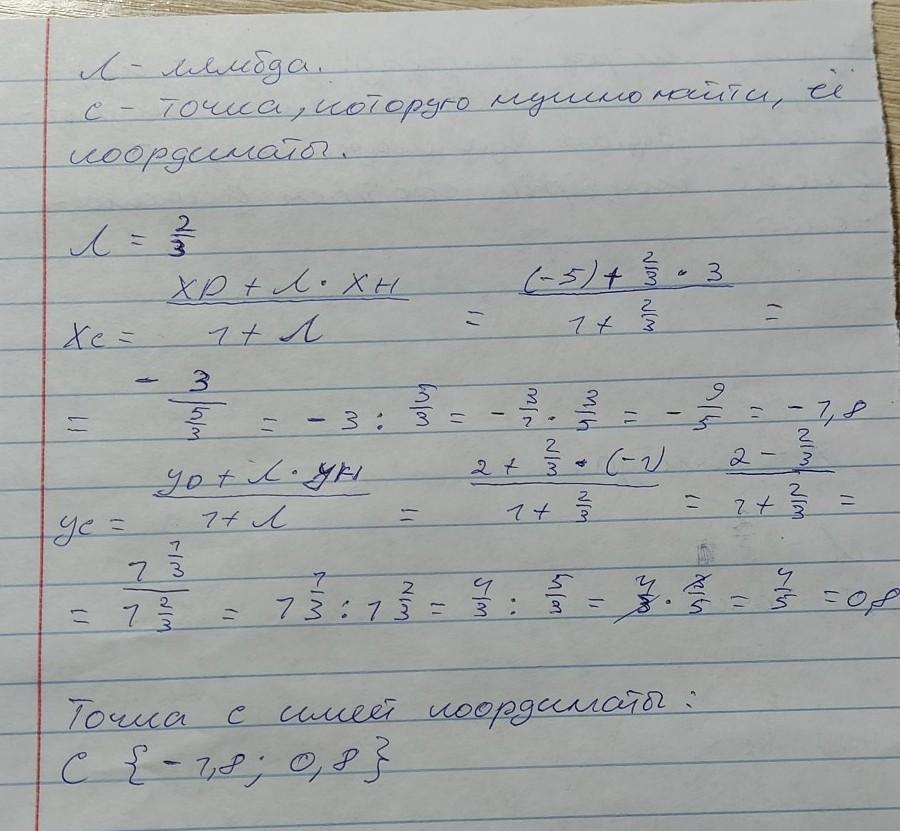 Л - лямбда.
с - точка, которую нужно найти, её
координаты.
Л = 2/3
xc = (xD + Л · xН)/(1 + Л) = ((-5) + 2/3 · 3)/(1 + 2/3) =
= -3/(5/3) = -3 : 5/3 = -3/1 · 3/5 = -9/5 = -1,8
yc = (yD + Л · yН)/(1 + Л) = (2 + 2/3 · (-1))/(1 + 2/3) = (2 - 2/3)/(1 + 2/3) =
= (1 1/3)/(1 2/3) = 1 1/3 : 1 2/3 = 4/3 : 5/3 = 4/3 · 3/5 = 4/5 = 0,8
Точка с имеет координаты:
С {-1,8; 0,8}